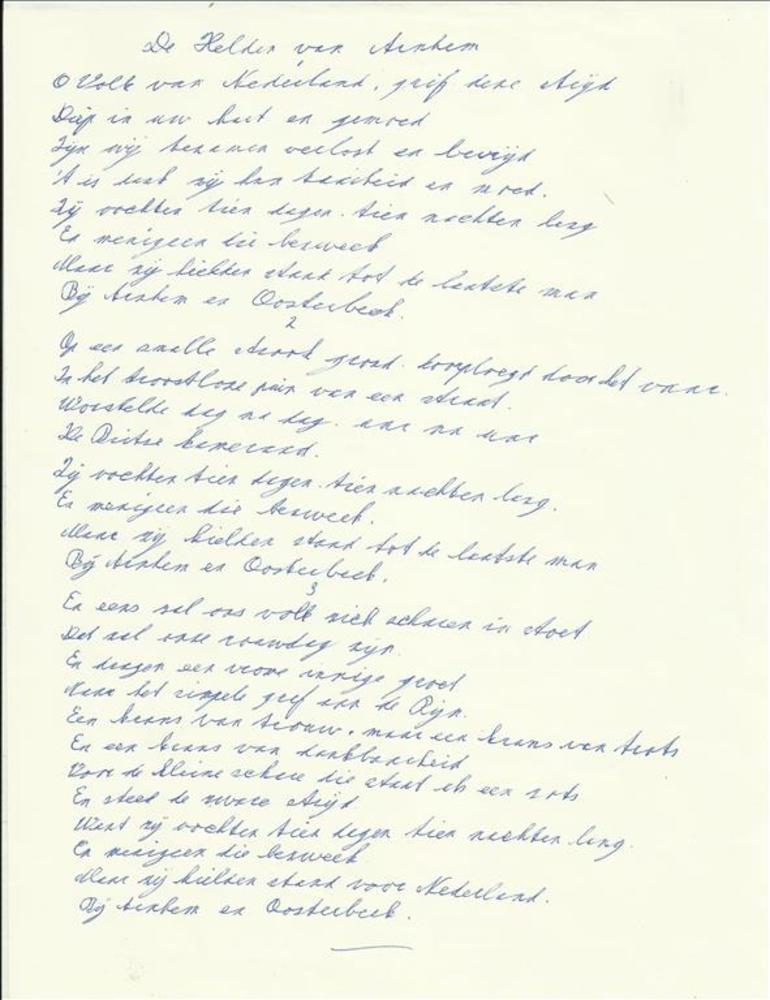 De Helden van Arnhem
O Volk van Nederland, grif deze strijd
Diep in uw hart en gemoed
Zijn wij tezamen verlost en bevrijd
't is dank zij hun taaiheid en moed.
Zij vochten tien dagen. tien nachten lang
En menigeen die bezweek
Maar zij hielden stand tot de laatste man
Bij Arnhem en Oosterbeek.
2
Op een smalle strook grond. doorploegd door het vuur.
In het troostloze puin van een straat.
Worstelde dag na dag. uur na uur
De Britse kameraad.
Zij vochten tien dagen. tien nachten lang.
En menigeen die bezweek.
Maar zij hielden stand tot de laatste man
Bij Arnhem en Oosterbeek.
3
En eens zal ons volk zich scharen in stoet
Dat zal onze rouwdag zijn.
En dragen een vrome innige groet
Naar het simpele graf aan de Rijn.
Een krans van trouw. maar een krans van trots
En een krans van dankbaarheid
Voor de kleine schare die staat als een rots
En streed de zware strijd
Want zij vochten tien dagen tien nachten lang.
En menigeen die bezweek
Maar zij hielden stand voor Nederland.
Bij Arnhem en Oosterbeek.